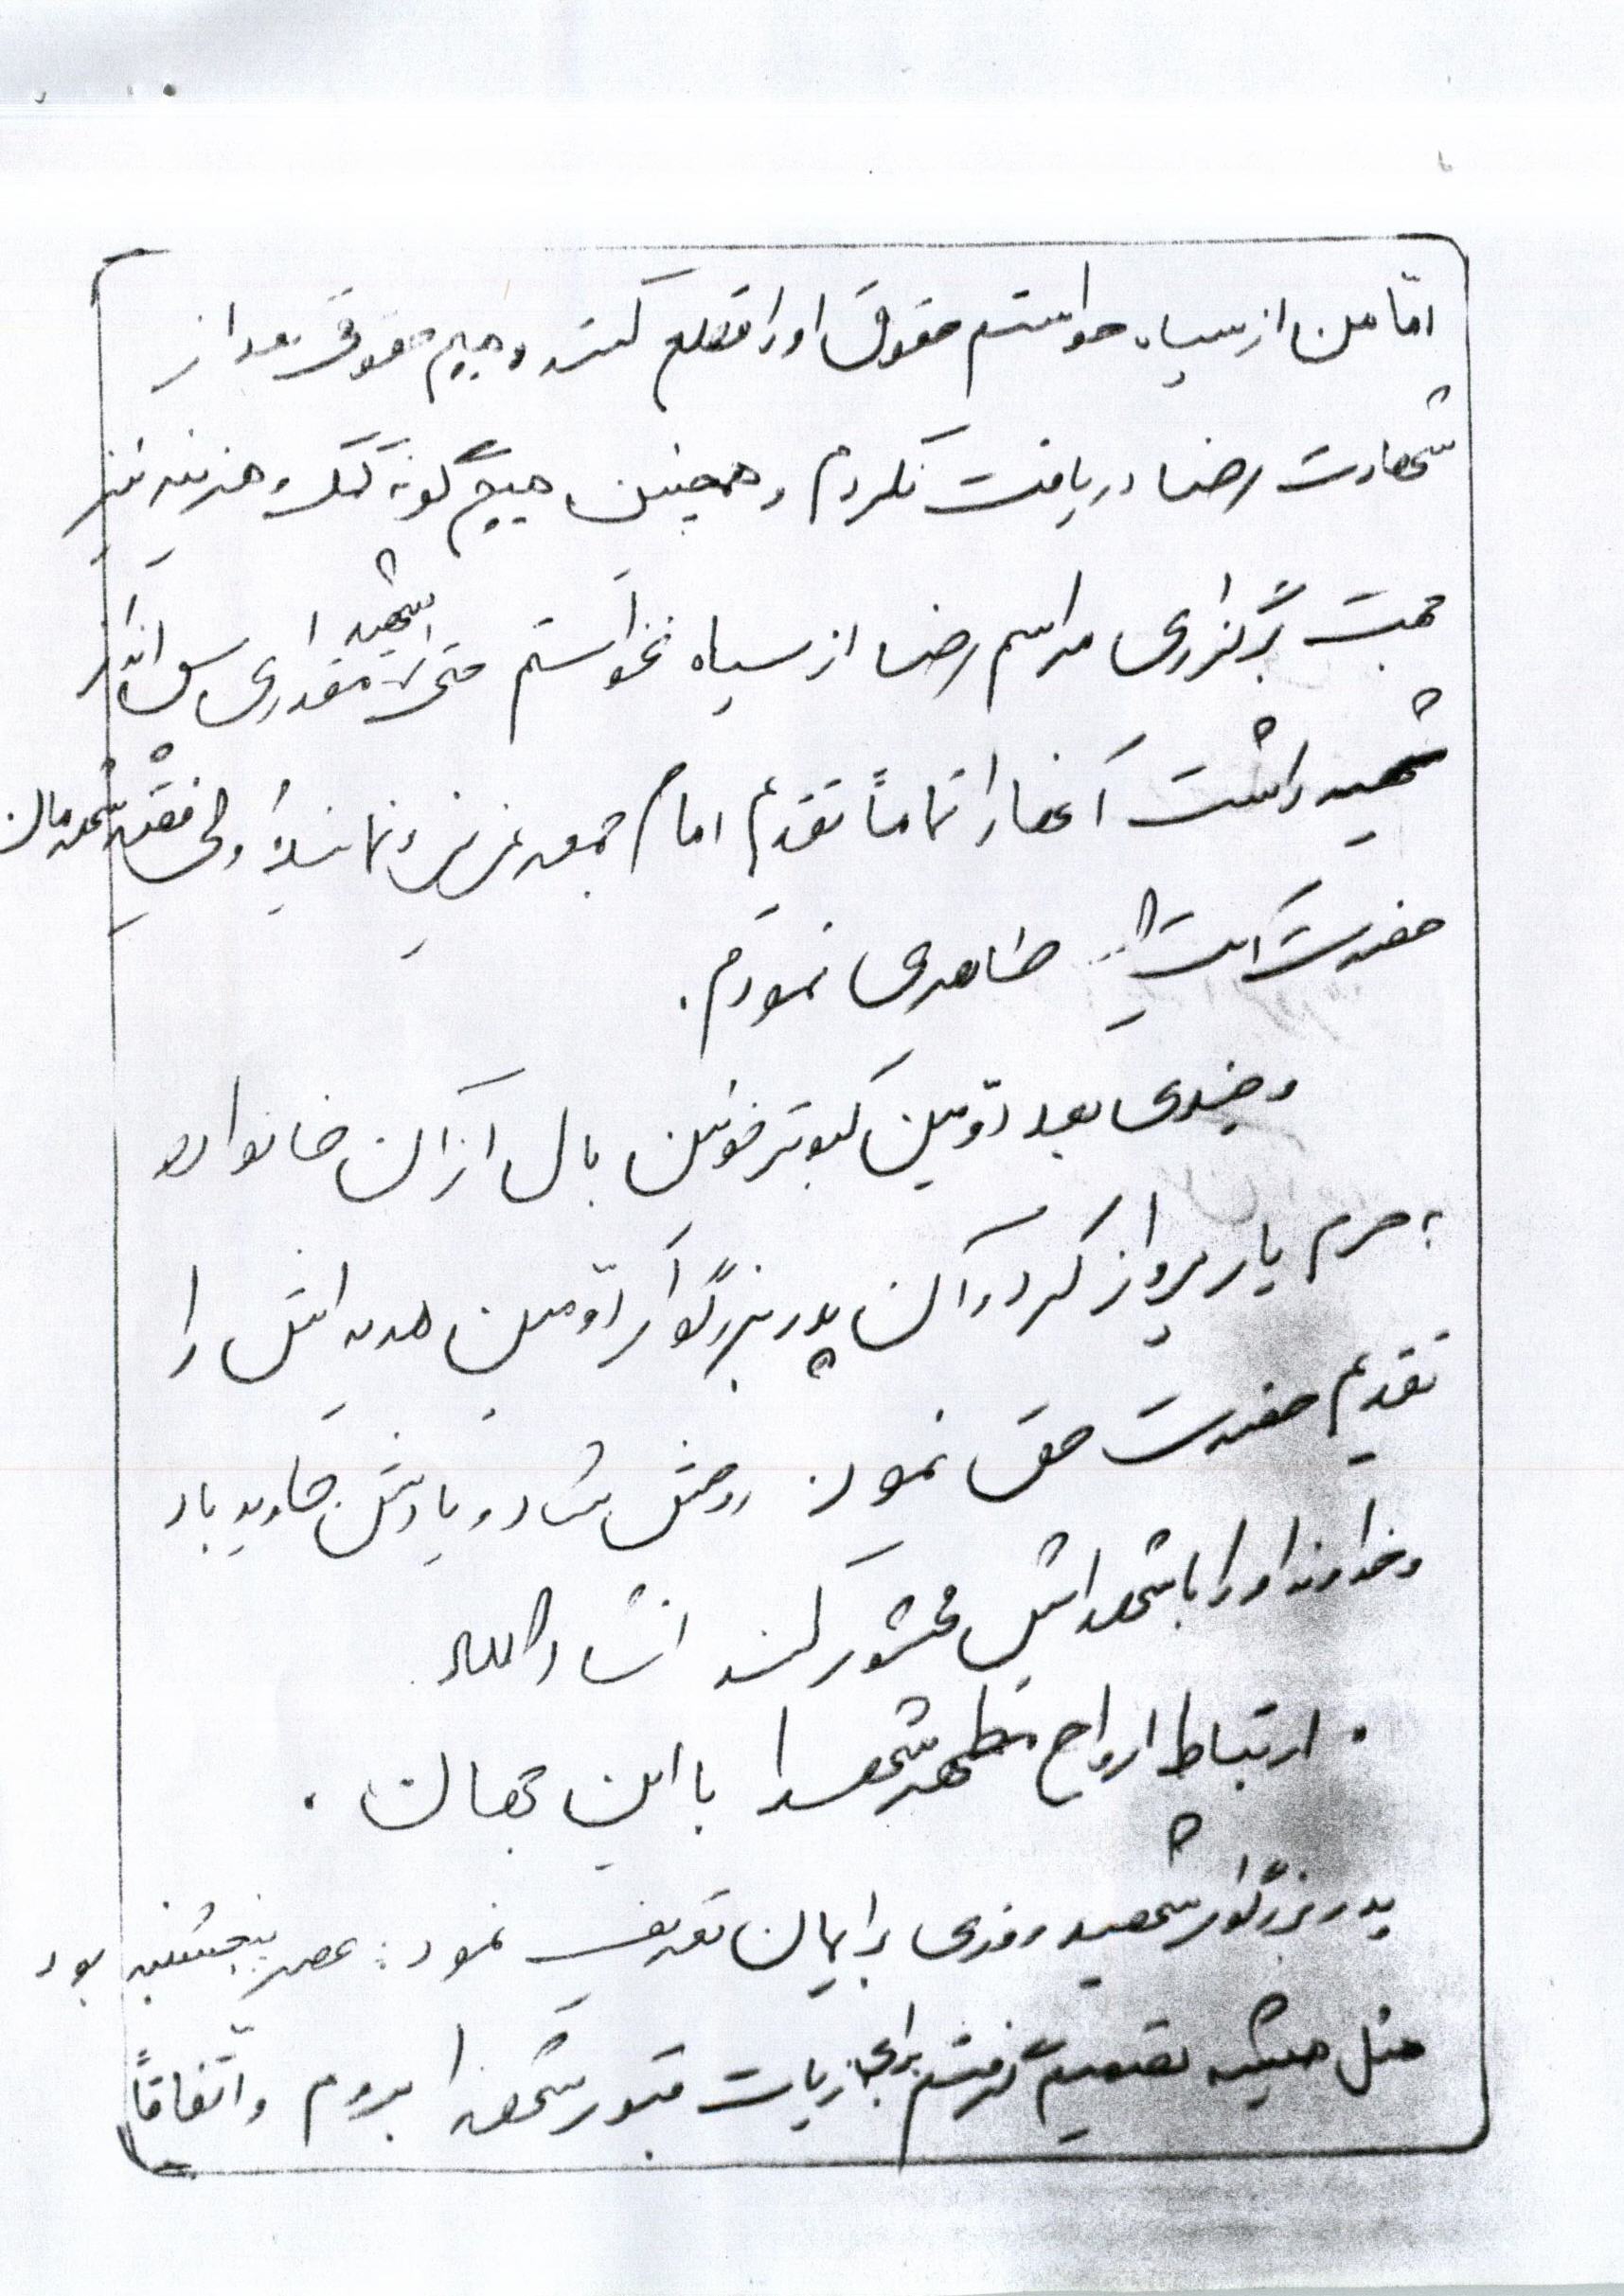 امّا من از سپاه خواستم حقوق او را قطع کنند و هیچ حقوقی بعد از
شهادت رضا دریافت نکردم و همچنین هیچ گونه کمک و هزینه نیز
جهت برگزاری مراسم رضا از سپاه نخواستم حتی مقداری پس انداز
شهید داشت آنها را تماماً تقدیم امام جمعه عزیز و نماینده ولی فقیه شهرمان
حضرت آیت الله طاهری نمودم.
و چندی بعد دوّمین کبوتر خونین بال از آن خانواده
به حرم یار پرواز کرد و آن پدر بزرگوار دوّمین هدیه اش را
تقدیم حضرت حق نمود. روحش شاد و یادش جاوید باد
و خداوند او را با شهدایش محشور کند انشاءالله
. ارتباط ارواح مطهر شهدا با این جهان .
پدر بزرگوار شهید روزی برایمان تعریف نمود: عصر پنجشنبه بود
مثل همیشه تصمیم گرفتم برای زیارت قبور شهدا بروم و اتّفاقاً